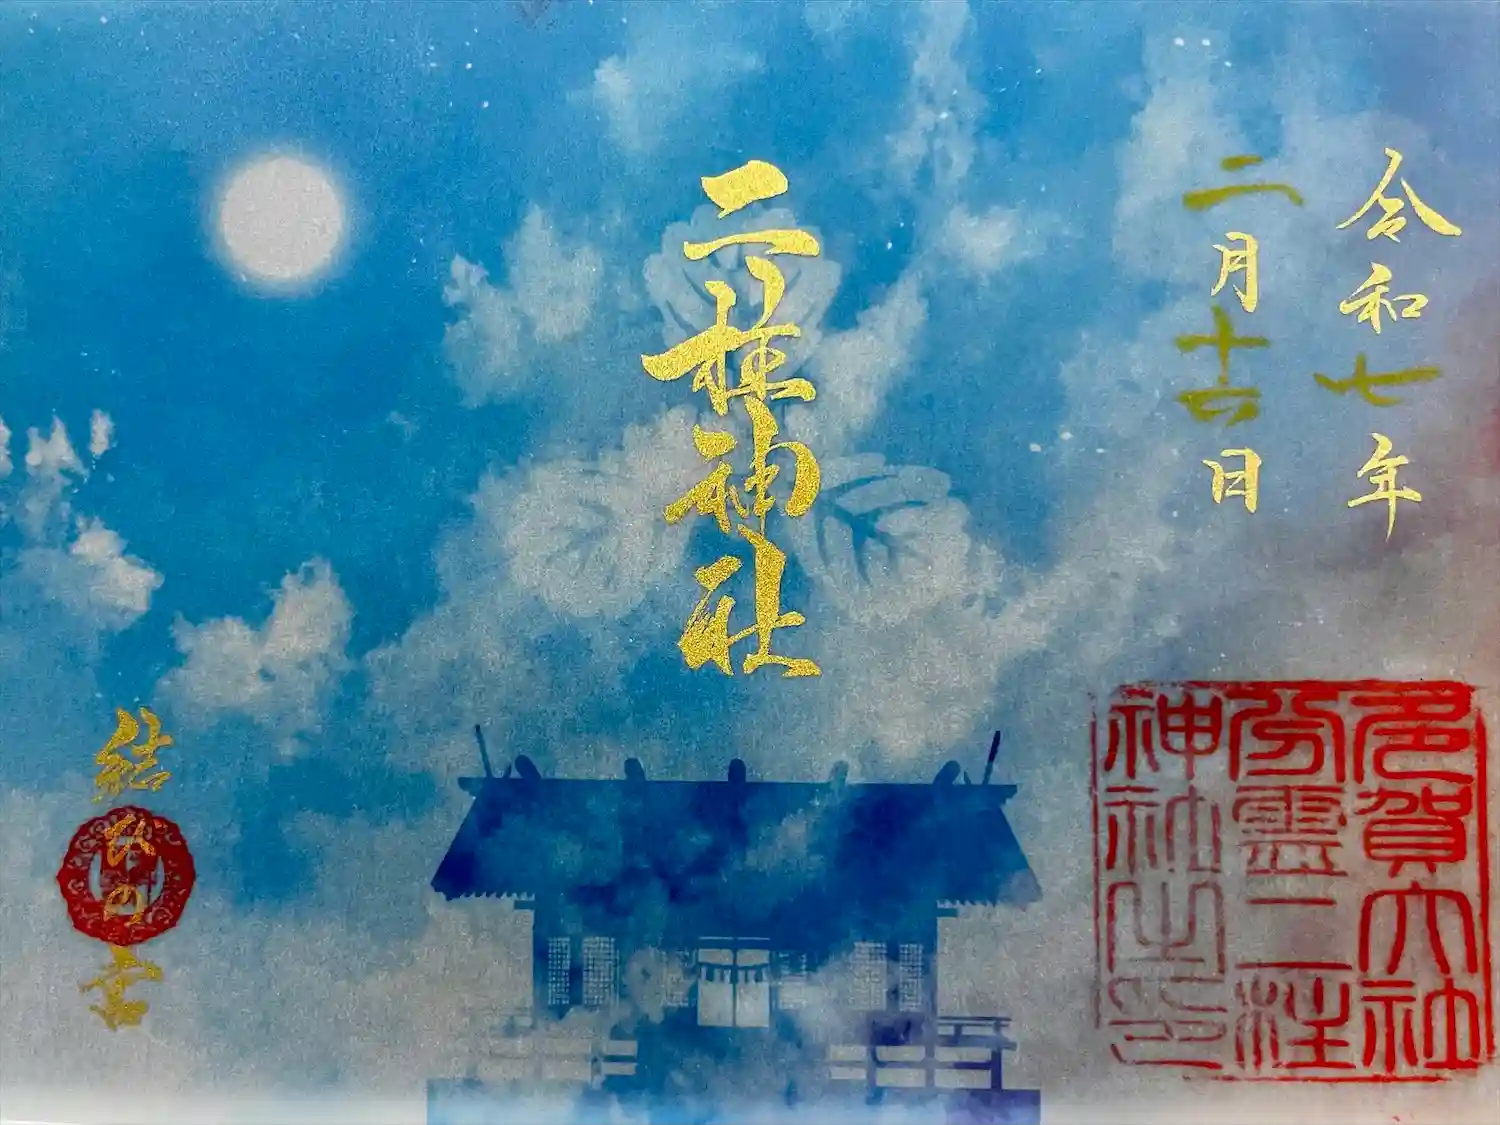 令和七年
二月十六日
二柱神社
多賀大社
分霊二柱
神社之印
結びの宮